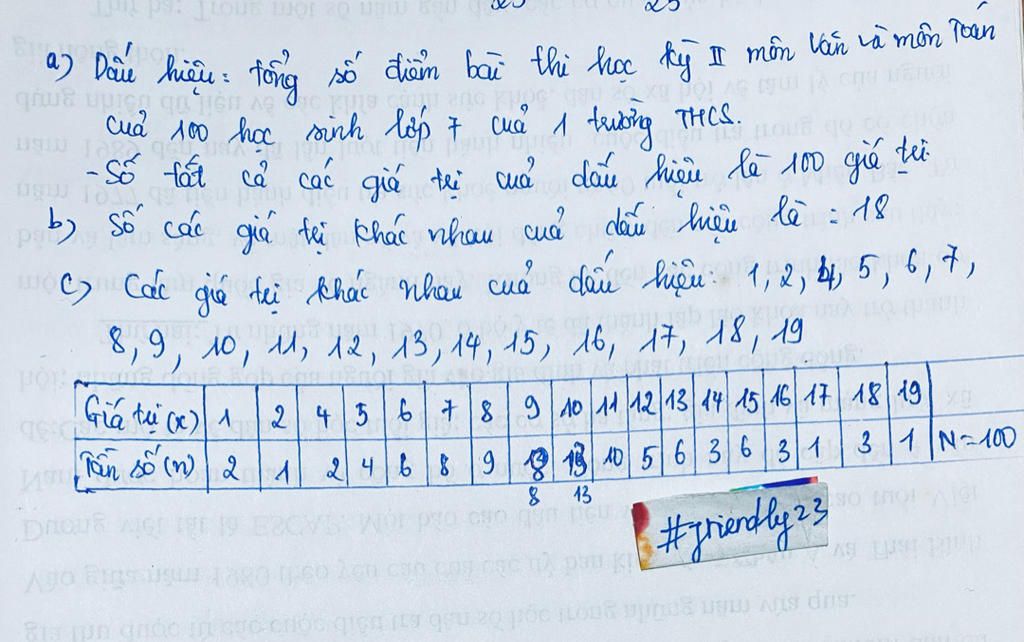 a) Dấu hiệu: tổng số điểm bài thi học kỳ II môn Văn và môn Toán
của 100 học sinh lớp 7 của 1 trường THCS.
- Số tất cả các giá trị của dấu hiệu là 100 giá trị.
b) Số các giá trị khác nhau của dấu hiệu là: 18
c) Các giá trị khác nhau của dấu hiệu: 1, 2, 4, 5, 6, 7,
8, 9, 10, 11, 12, 13, 14, 15, 16, 17, 18, 19
Giá trị (x) 1 2 4 5 6 7 8 9 10 11 12 13 14 15 16 17 18 19
Tần số (n) 2 1 2 4 6 8 9 10 5 6 3 6 3 1 3 1 N=100
8 13
#friendly23